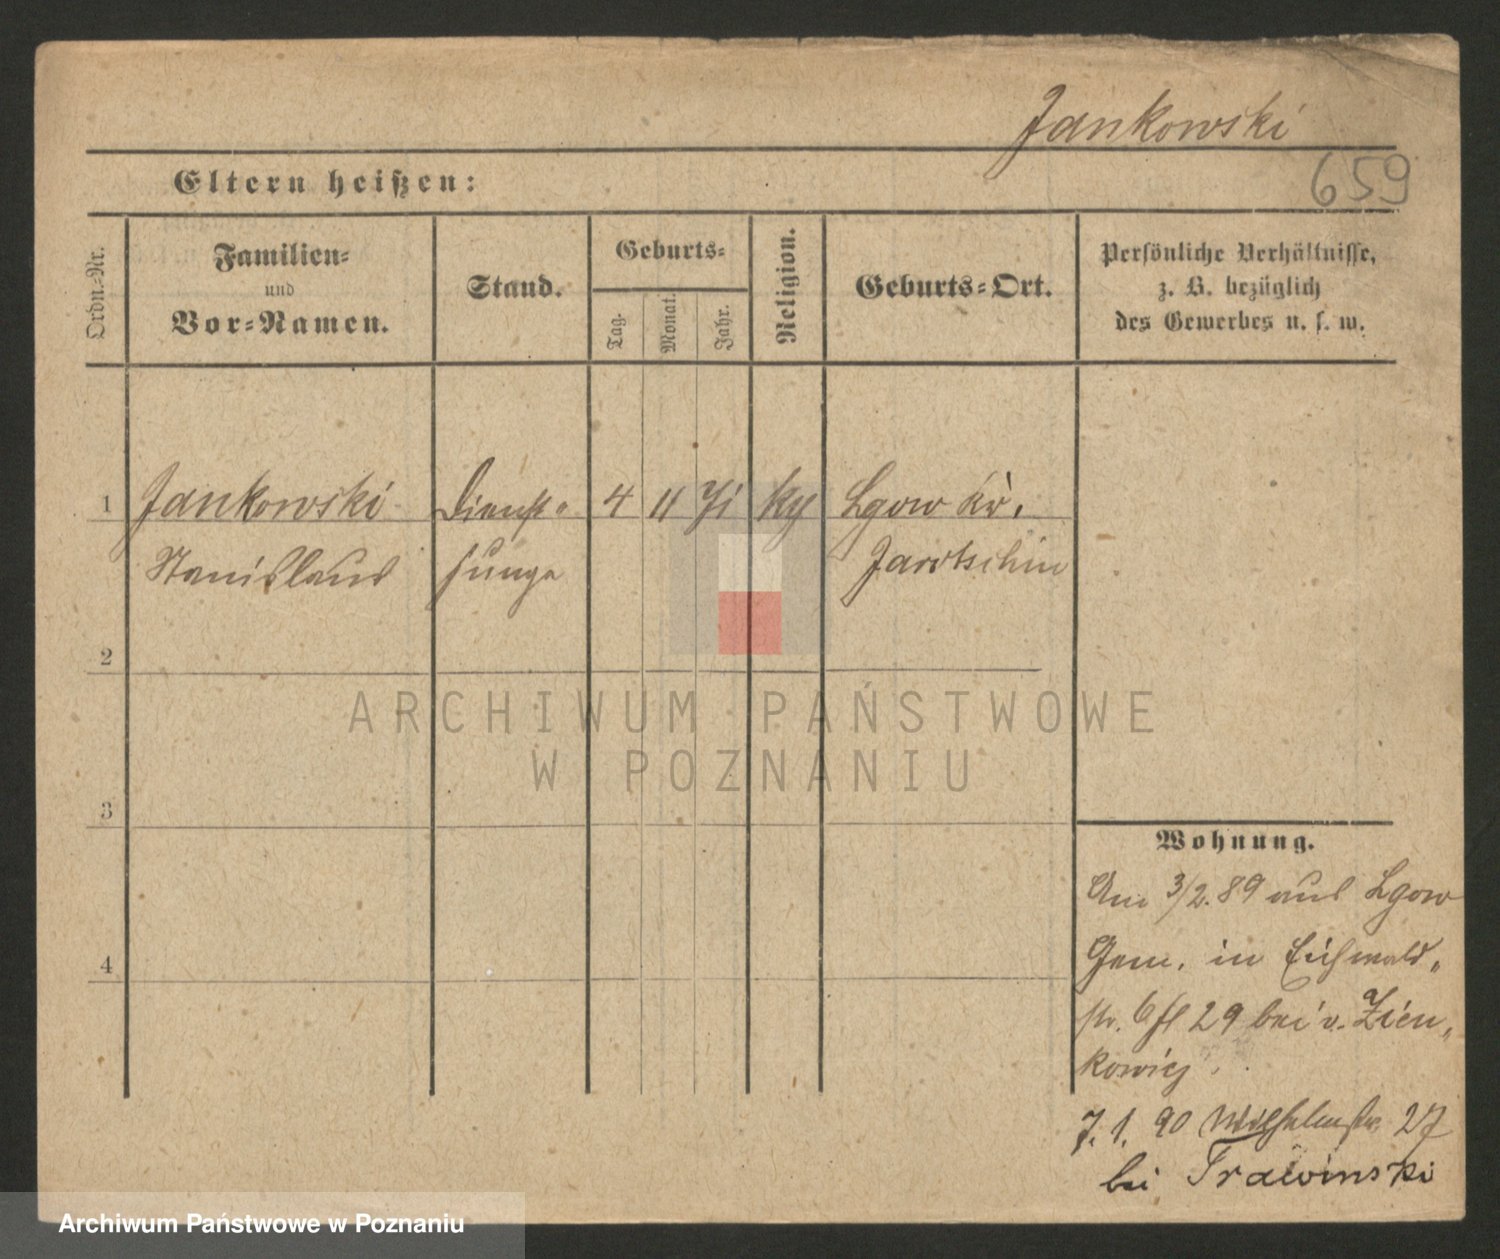 Jankowski
659
Eltern heißen:
Ordn.-Nr.
Familien-
und
Vor-Namen.
Stand.
Geburts-
Tag.
Monat.
Jahr.
Religion.
Geburts-Ort.
Persönliche Verhältnisse,
z. B. bezüglich
des Gewerbes u. s. w.
1 Jankowski Dienst- 4 11 71 kg Lgow Kr.
Stanislaus junge Jarotschin
2
3
4
Wohnung.
Am 3/2. 89 aus Lgow
Gem. in Eichwald-
str. 6 29 bei v. Zien-
kowicz.
7. 1. 90 Wilhelmstr. 27
bei Trawinski
ARCHIWUM PAŃSTWOWE
W POZNANIU
Archiwum Państwowe w Poznaniu